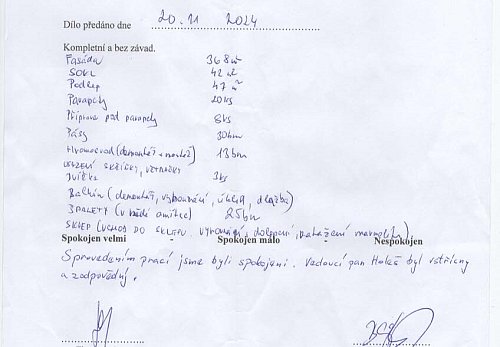 Dílo předáno dne 20. 11 2024
Kompletní a bez závad.
Fasáda 368 m²
SOKL 42 m²
Podhled 47 m²
Parapety 20 ks
Příprava pod parapety 8 ks
Pásy 30 bm
Hromosvod (demontáž + montáž) 13 bm
SKŘÍŇKY, VĚTRAČKY
Dvířka 3 ks
Balkón (demontáž, vyrovnání, úklid, dlažba)
ŠPALETY (v 25 bm
SKLEP (VCHOD DO SKLEPU
Spokojen velmi - Spokojen málo - Nespokojen
S provedením prací jsme byli spokojeni. Vedoucí pan byl vstřícný
a zodpovědný.